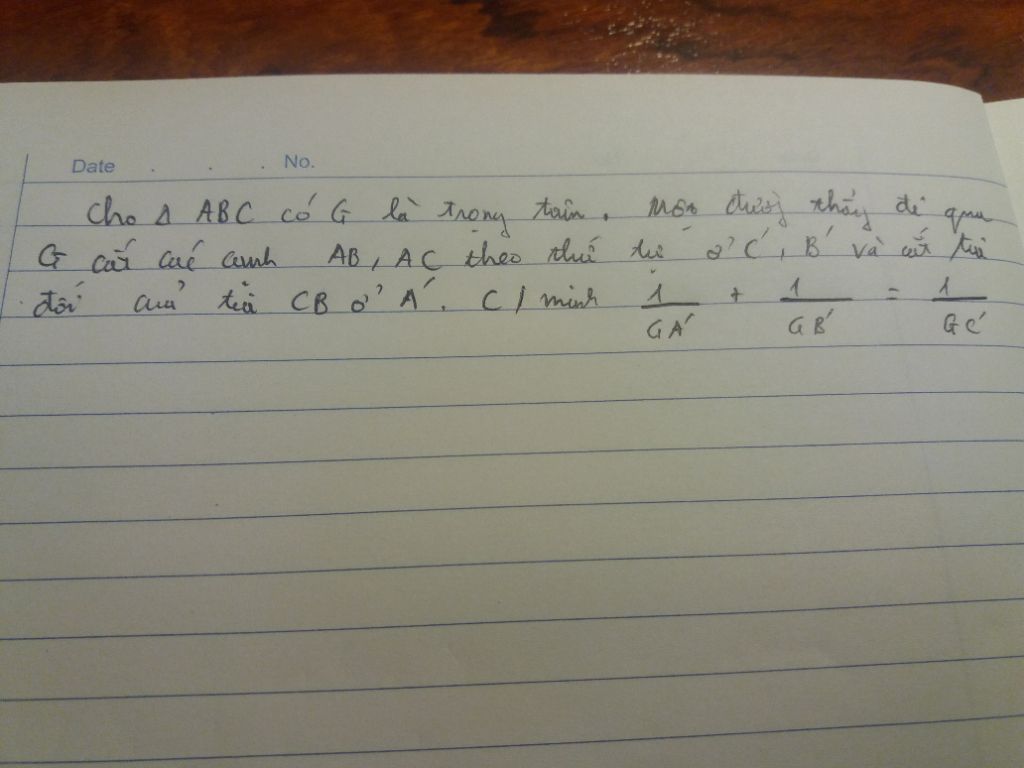 Date . . . No.
Cho Δ ABC có G là trọng tâm. Một đường thẳng đi qua
G cắt các cạnh AB, AC theo thứ tự ở C', B' và cắt tia
đối của tia CB ở A'. C/minh 1/GA' + 1/GB' = 1/GC'